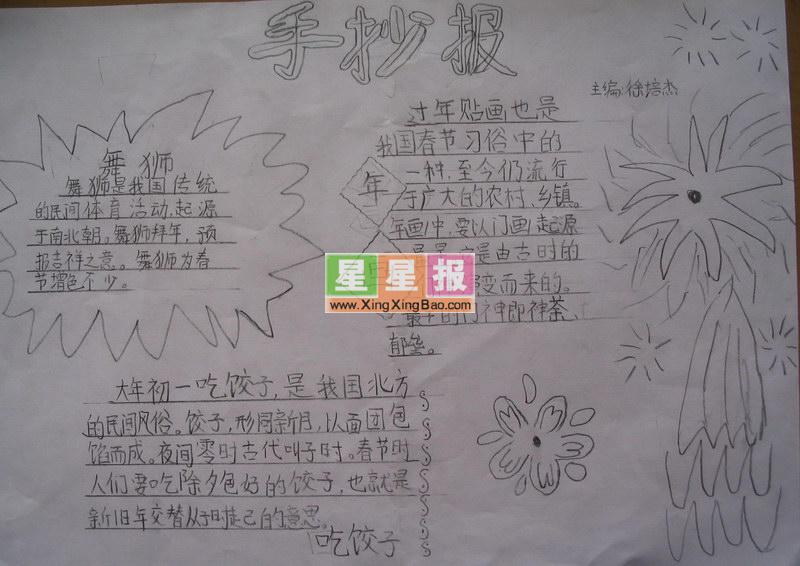 手抄报
主编:徐培杰
舞狮
舞狮是我国传统
的民间体育活动,起源
于南北朝。舞狮拜年,预
报吉祥之意。舞狮为春
节增色不少。
年
画
过年贴画也是
我国春节习俗中的
一种,至今仍流行
于广大的农村、乡镇。
年画中,要以门画起源
最早,它是由古时的
变而来的。
最早的门神即神荼、
郁垒。
星星报
www.XingXingBao.com
大年初一吃饺子,是我国北方
的民间风俗。饺子,形同新月,以面团包
馅而成。夜间零时古代叫子时。春节时
人们要吃除夕包好的饺子,也就是
新旧年交替从子时起己的意思。
吃饺子